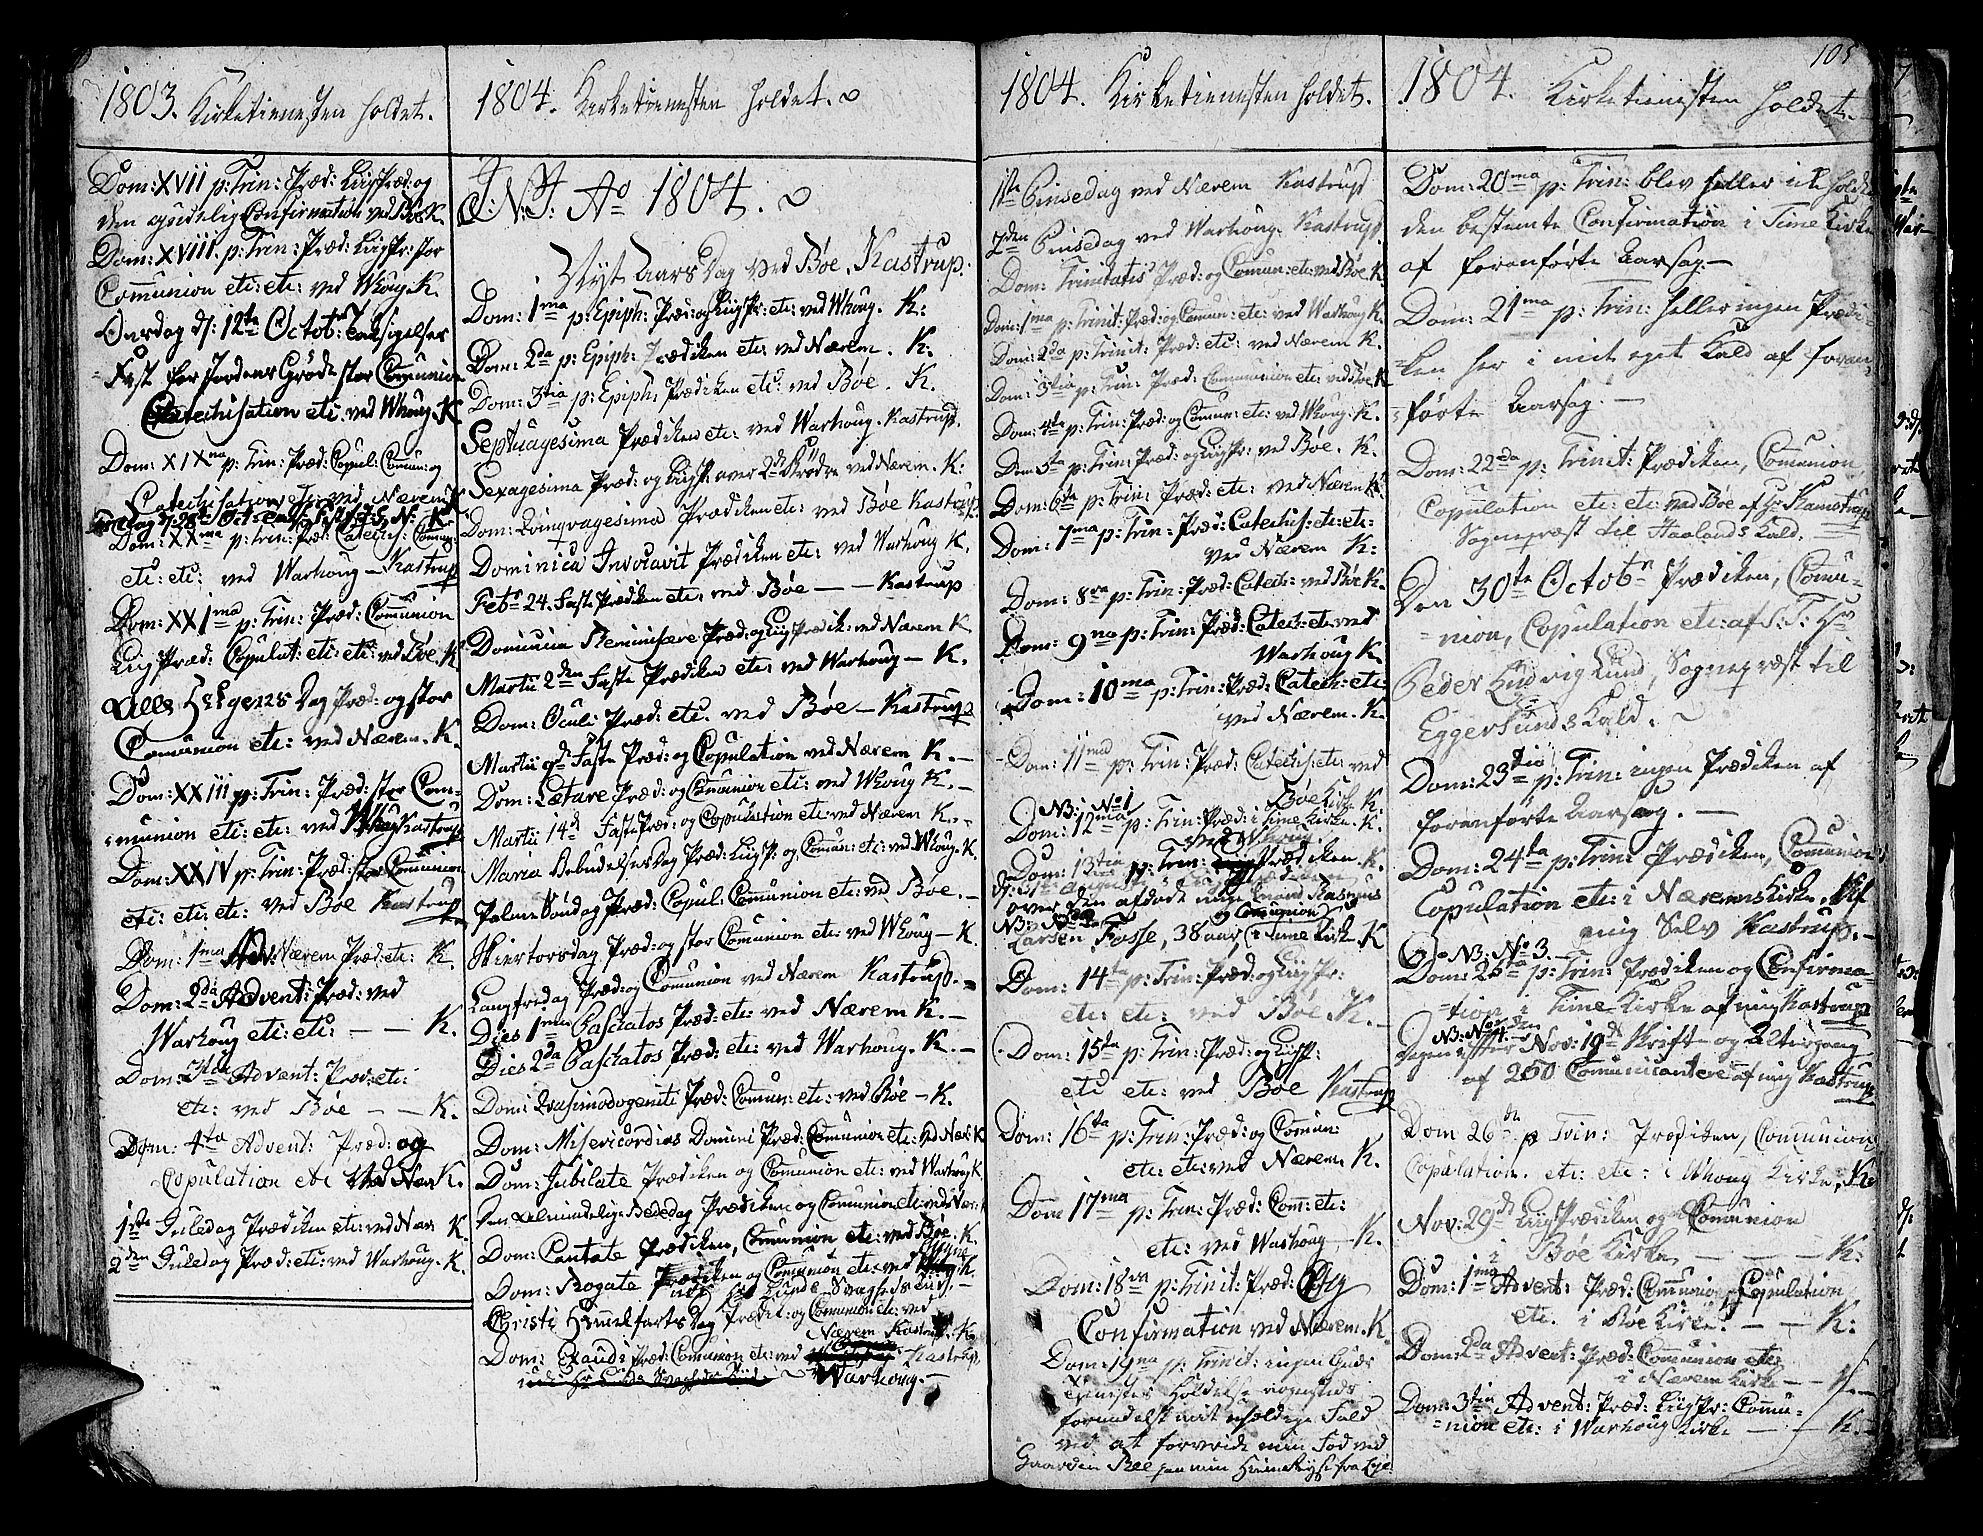 1803. Kirketienesten holdet.
Dom: XVII p: Trin: Præd: Liigpræd: og
den gudelig Confirmation ved Bøe K.
Dom: XVIII. p: Trin: Præd: Liigpr: stor
Communion etc: etc: ved Whoug. K.
Onsdag d: 12te Octobr Taksigelses
Fæst for Jordens Grøde stor Comunion
Catechisation etc: ved Whoug. K
Dom: XIXna p: Trin: Præd: Copul: Comun: og
Catechisation etc: ved Nærem
Dom: XXma p: Trin: Præd: Catech: Comun:
etc: etc: ved Warhoug — Kastrup
Dom: XXIma p: Trin: Præd: Communion
Liig Præd: Copulat: etc: etc: ved Bøe. K
Alle Helgens Dag Præd: og stor
Comunion etc: ved Nærem. K.
Dom: XXIII p: Trin: Præd: stor Com-
munion etc: etc: ved Whoug Kastrup
Dom: XXIV p: Trin: Præd: stor Communion
etc: etc: etc: ved Bøe Kastrup
Dom: 1ma Adv: Nærem Præd: etc: K.
Dom: 2da Advent: Præd: ved
Warhoug etc: etc: — — K.
Dom: 3tia Advent: Præd: etc:
etc: ved Bøe — — K.
Dom: 4ta Advent: Præd: og
Copulation etc ved Nær K.
1ste Juledag Prædiken etc: ved Nær: K.
2den Juledag Præd: etc: ved Warhoug. K.
1804. Kirketienesten holdet.
J: N: J: Ao 1804.
Nyt Aars Dag ved Bøe. Kastrup.
Dom: 1ma p: Epiph: Præd: og Liigpr: etc: ved Whoug. K:
Dom: 2da p: Epiph: Prædiken etc: ved Nærem. K:
Dom: 3tia p: Epiph: Prædiken etc: ved Bøe. K.
Septuagesima Prædiken etc: ved Warhoug. Kastrup.
Sexagesima Præd: og Liigpr: over 2de Brødre ved Nærem. K:
Dom: Qvinqvagesima Prædiken etc: ved Bøe Kastrup
Dominica Invocavit Prædiken etc: ved Warhoug K.
Febr 24. Faste Prædiken etc: ved Bøe — — Kastrup
Dominica Reminiscere Præd: og Liigprædik: ved Nærem K.
Martii 2den Faste Prædiken etc: ved Warhoug — K.
Dom: Oculi Præd: etc. ved Bøe — Kastrup
Martii 9de Faste Præd: og Copulation ved Nærem K. —
Dom: Lætare Præd: og Comunion etc: ved Whoug K. —
Martii 14d Faste Præd: og Copulation etc: ved Nærem K. —
Maria Bebudelses Dag Præd: Liigpr: og Comun: etc: ved Whoug. K.
Palme Søndag Præd: Copul: Communion etc: ved Bøe. —
Skiertorsdag Præd: og stor Comunion etc: ved Whoug — K.
Langfredag Præd: og Comunion ved Nærem Kastrup. —
Dies 1ma Paschatos Præd: etc: ved Nærem K. —
Dies 2da Paschatos Præd: etc: ved Warhoug. K. —
Dom: Qvasimodogeniti Præd: Comun: etc: ved Bøe — K.
Dom: Misericordias Domini Præd: Comunion etc: ved Nær: K
Dom: Jubilate Prædiken og Comunion etc: ved Warhoug K.
Den Almindelige Bededag Prædiken og Comunion etc: ved Nær:
Dom: Cantate Prædiken, Comunion etc: ved Bøe. K.
Dom: Rogate Prædiken og Comunion etc: ved K.
Christi Himmelfarts Dag Prædik: og Comunion etc: ved
Nærem Kastrup. K.
Dom: Exaudi Præd: Comunion etc: ved Kastrup.
Warhoug. —
1804. Kirketienesten holdet.
1ste Pinsedag ved Nærem Kastrup
2den Pinsedag ved Warhoug. Kastrup.
Dom: Trinitatis Præd: og Comun: etc: ved Bøe K.
Dom: 1ma p: Trinit: Præd: og Comun: etc: ved Warhoug K.
Dom: 2da p: Trinit: Præd: etc: ved Nærem K.
Dom: 3tia p: Trin: Præd: Communion etc: ved Bøe K
Dom: 4ta p: Trin: Præd: og Comun: etc: ved Whoug. K.
Dom 5ta p: Trin: Præd: og Liigpr: ved Bøe. K.
Dom: 6ta p: Trin: Præd: etc: ved Nærem K.
Dom: 7ma p: Trin: Præd: Catechis: etc: etc:
ved Nærem K:
Dom: 8va p: Trin: Præd: Catech: ved Bøe K.
Dom: 9na p: Trin: Præd: Catech: etc: ved
Warhoug K.
Dom: 10ma p: Trin: Præd: Catech: etc:
ved Nærem. K.
Dom: 11ma p: Trin: Præd: Catechis: etc: ved
Bøe Kirk: K.
NB: No 1
Dom: 12ma p: Trin: Præd: i Time Kirke. K.
Dom: 13tia p: Trin: Prædiken. K.
over den afdøde unge Mand Rasmus
NB: No 2 og Comunion
Larsen Fosse, 38 aar i Time Kirke. K
Dom: 14ta p: Trin: Præd: og Liigpr:
etc: etc: ved Bøe. K. —
Dom: 15ta p: Trin: Præd: og Liigpr:
etc etc: ved Bøe Kastrup
Dom: 16ta p: Trin: Præd: og Comun:
etc: etc: ved Nærem. K.
Dom 17ma p: Trin: Præd: Com: etc:
etc: ved Warhoug — K.
Dom: 18va p: Trinit: Præd: Og
Confirmation ved Nærem. K.
Dom: 19na p: Trinit: ingen Guds
Tienestes Holdelse nogensteds
formedelst mit uheldige Fald
ved at forvride min Fod ved
Gaarden Boe paa min Hiemreise fra
1804. Kirketienesten holdet. 105
Dom: 20ma p: Trin: blev heller ikke holdt
den bestemte Confirmation i Time Kirke
af foranførte Aarsag. —
Dom: 21ma p: Trin: heller ingen Prædi-
ken her i mit eget Kald af foran-
førte Aarsag. —
Dom: 22da p: Trinit: Prædiken, Comunion,
Copulation etc: etc: ved Bøe af Hr Kamstrup
Sognepræst til Haalands Kald.
Den 30te Octobr Prædiken, Comu-
nion, Copulation etc: af S: T: Hr
Peder Ludvig Lund, Sognepræst til
Eggersunds Kald.
Dom: 23tia p: Trin: ingen Prædiken af
foranførte Aarsag. —
Dom: 24ta p: Trin: Prædiken, Comunion
Copulation etc: i Nærems Kirke, af
mig Selv Kastrup. —
NB: No 3.
Dom: 25ta p: Trin: Prædiken og Confirma-
tion i Time Kirke af mig Kastrup
NB: No 4.
Dagen efter den Nov: 19de Skrift og Altergang
af 260 Comunicantere af mig Kastrup
Dom 26ta p Trin: Prædiken, Comunion
Copulation. etc: etc: i Whoug Kirke, K:
Nov: 29de Liigprædiken og Comunion
i Bøe Kirke — — — K:
Dom: 1ma Advent: Præd: Communion Copulation
etc. i Bøe Kirke. — — K:
Dom: 2da Advent: Præd: Communion etc:
i Nærem Kirke — — K. —
Dom: 3tia Advent: Præd: Liigpr: Comu-
nion etc: i Warhoug Kirke — — K. —